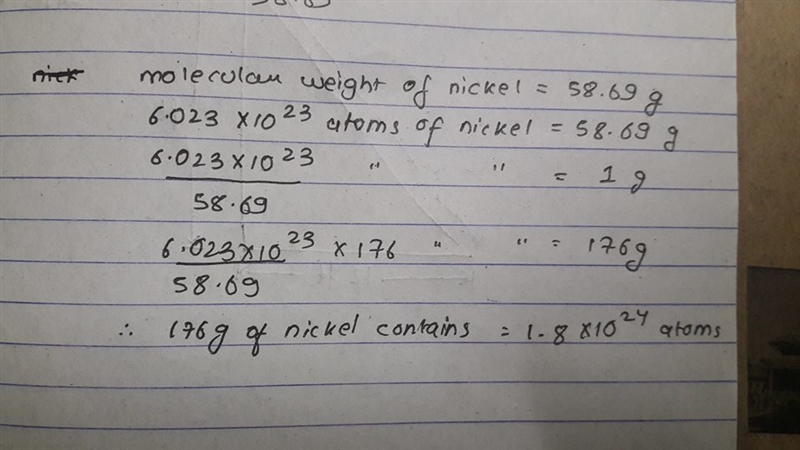 moleculan weight of nickel = 58.69 g
6.023 ×10²³ atoms of nickel = 58.69 g
6.023×10²³ " " = 1 g
58.69
6.023×10²³ × 176 " " = 176g
58.69
∴ 176g of nickel contains = 1.8 ×10²⁴ atoms